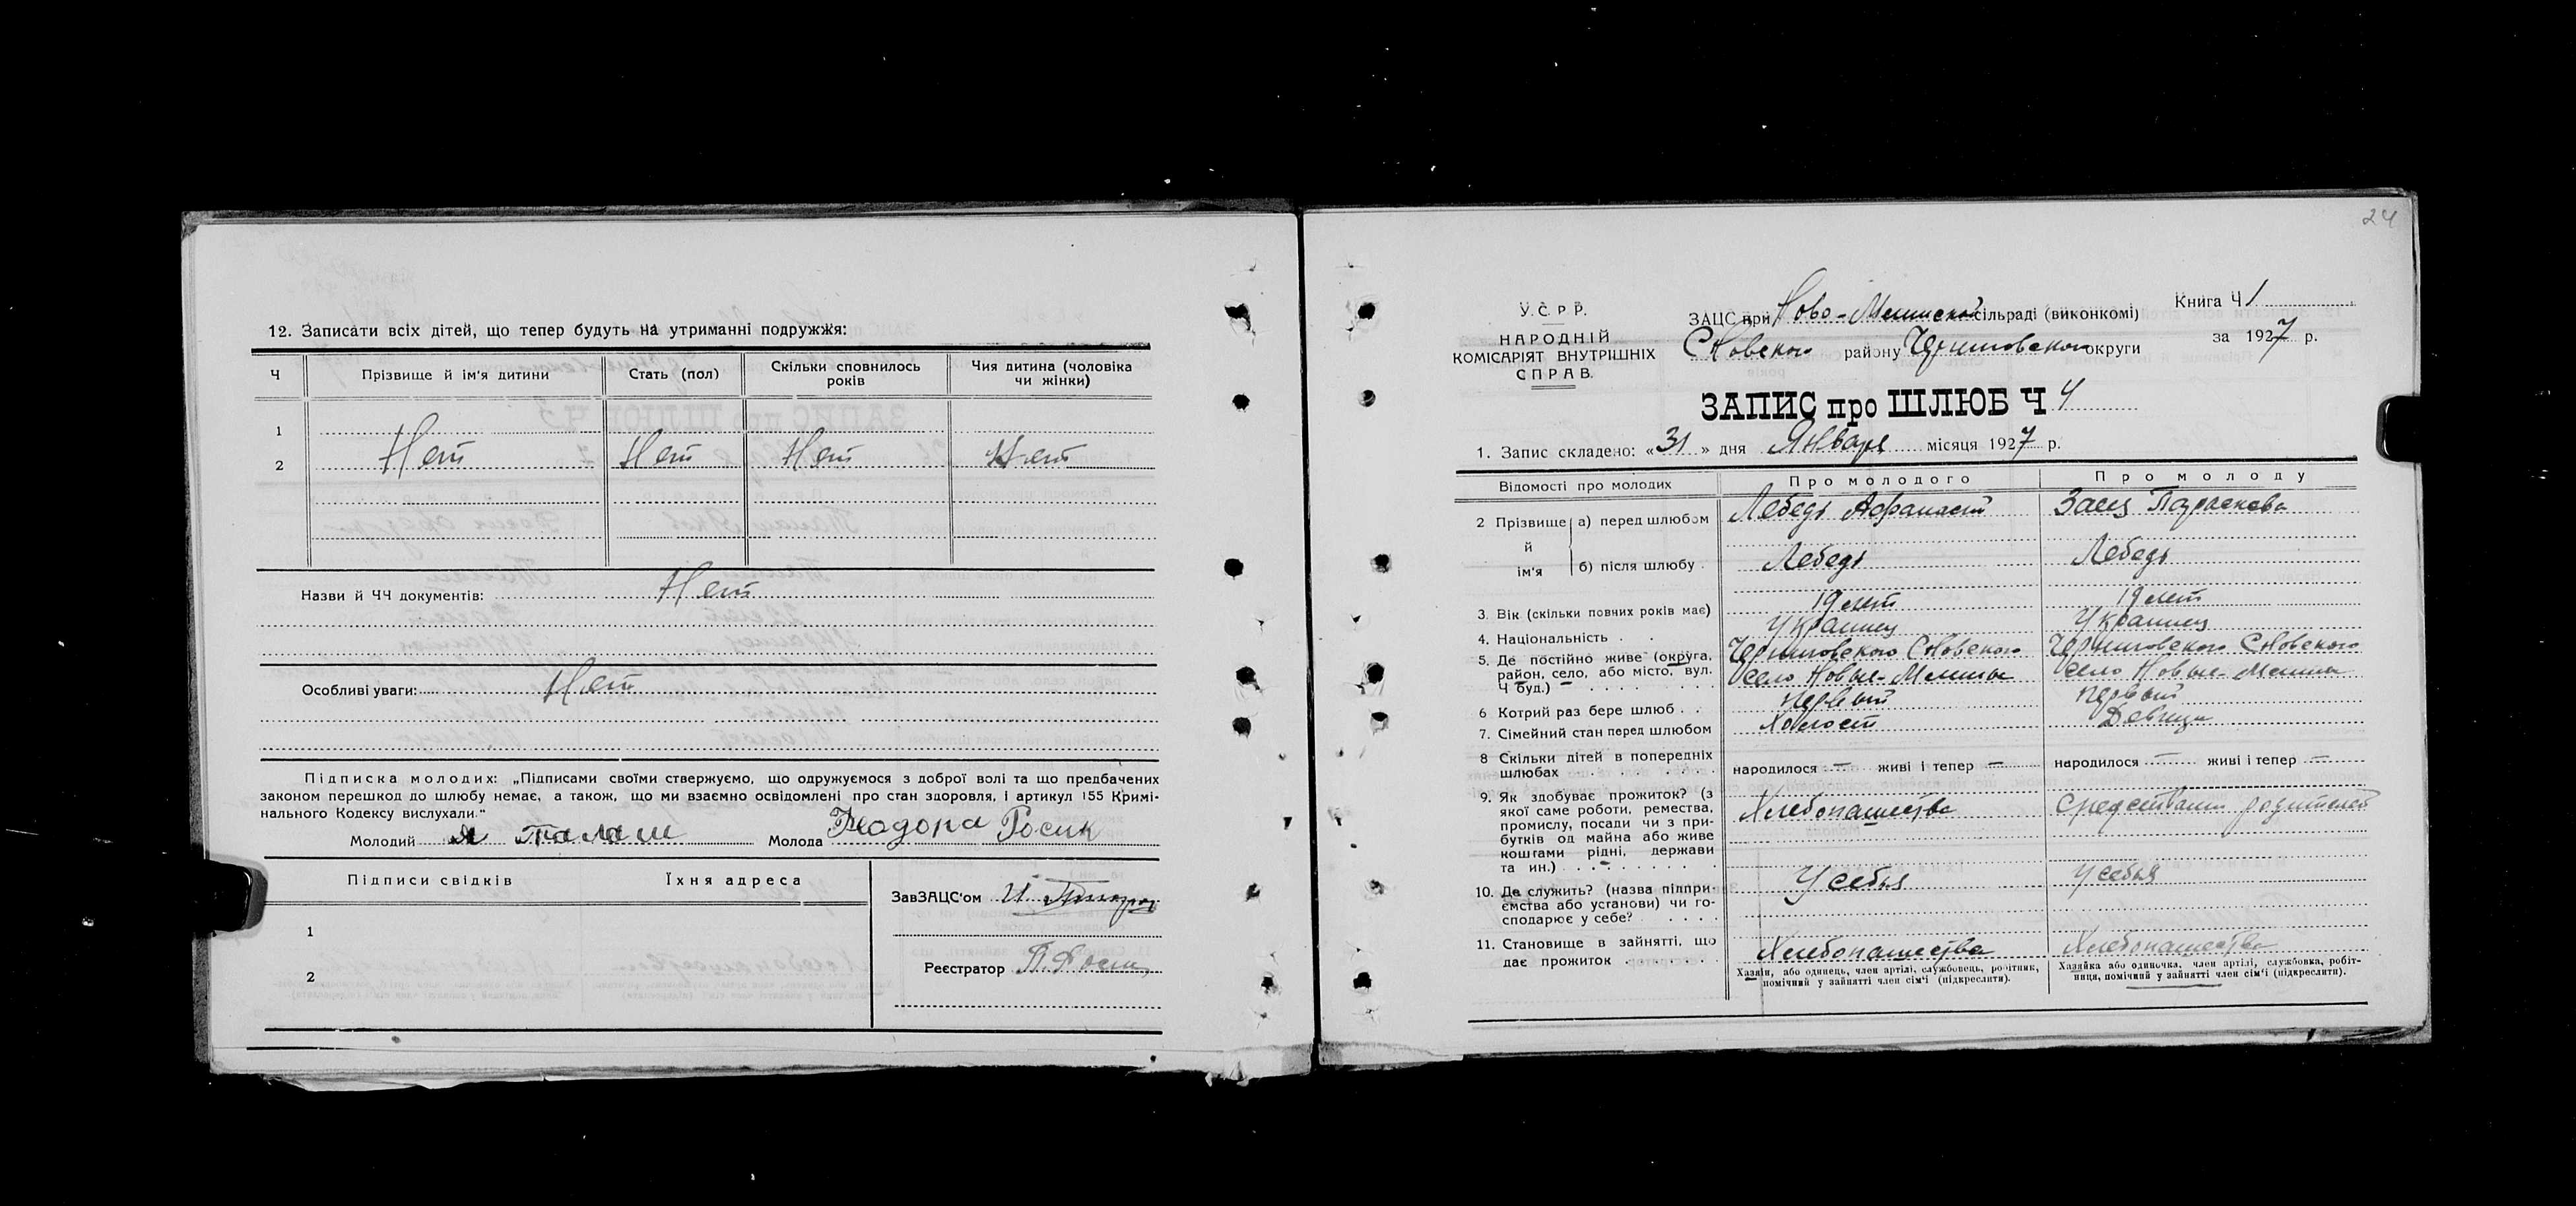 12. Записати всіх дітей, що тепер будуть на утриманні подружжя:
Ч
Прізвище й ім'я дитини
Стать (пол)
Скільки сповнилось років
Чия дитина (чоловіка чи жінки)
1
2 Нет Нет Нет Нет
Назви й ЧЧ документів: Нет
Особливі уваги: Нет
Підписка молодих: „Підписами своїми ствержуємо, що одружуємося з доброї волі та що предбачених
законом перешкод до шлюбу немає, а також, що ми взаємно освідомлені про стан здоровля, і артикул 155 Кримі-
нального Кодексу вислухали."
Молодий Я Талаш Молода Росик
Підписи свідків Їхня адреса
ЗавЗАЦС'ом И.
1
Реєстратор П.
2
24
У.С.Р.Р.
НАРОДНІЙ
КОМІСАРІЯТ ВНУТРІШНІХ
СПРАВ.
ЗАЦС при Ново- сільраді (виконкомі)
Сновского району Черниговского округи
Книга Ч 1
за 1927 р.
ЗАПИС про ШЛЮБ Ч 4
1. Запис складено: «31» дня Января місяця 1927 р.
Відомості про молодих
Про молодого
Про молоду
2 Прізвище й ім'я
а) перед шлюбом Лебедь Афанасий Заец Параскева
б) після шлюбу Лебедь Лебедь
3. Вік (скільки повних років має) 19 лет 19 лет
4. Національність Украинец Украинец
5. Де постійно живе (округа, район, село, або місто, вул. Ч буд.)
Черниговского Сновского Черниговского Сновского
село Новые-Млины село Новые-Млины
6 Котрий раз бере шлюб первый первый
7. Сімейний стан перед шлюбом Холост Девица
8 Скільки дітей в попередніх шлюбах
народилося — живі і тепер — народилося — живі і тепер —
9. Як здобуває прожиток? (з якої саме роботи, ремества, промислу, посади чи з прибутків од майна або живе коштами рідні, держави та ин.)
Хлебопашества Средствами родителей
10. Де служить? (назва підприємства або установи) чи господарює у себе?
У себья У себья
11. Становище в зайнятті, що дає прожиток
Хлебопашества Хлебопашества
Хазяїн, або одинець, член артілі, службовець, робітник,
помічний у зайнятті член сім'ї (підкреслити).
Хазяйка або одиночка, член артілі, службовка, робіт-
ниця, помічний у зайнятті член сім'ї (підкреслити).